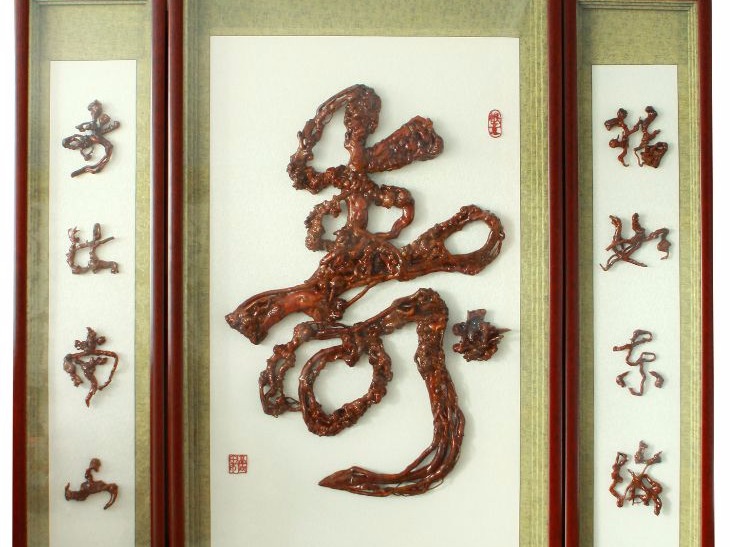 福如东海
壽
寿比南山